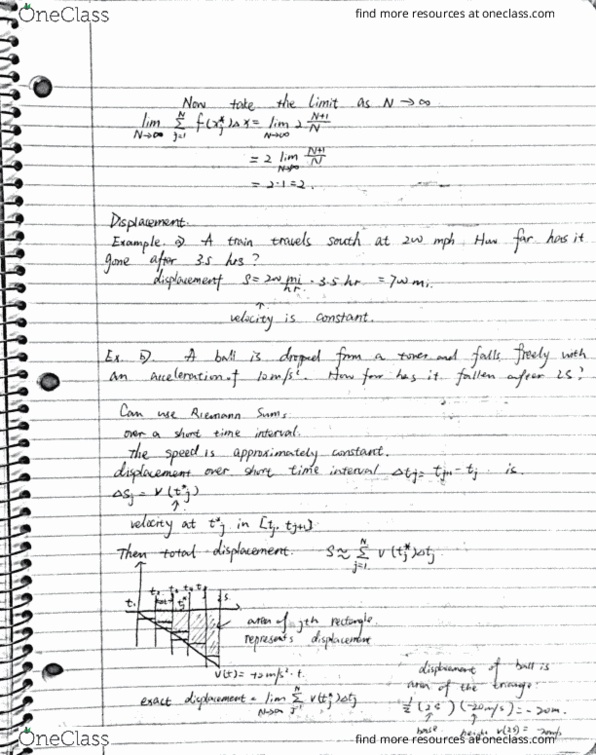 OneClass
find more resources at oneclass.com
Now take the limit as N→∞
lim N→∞ Σ j=1 N f(xj*)Δx = lim N→∞ 2 N+1/N
= 2 lim N→∞ N+1/N
= 2·1 = 2.
Displacement.
Example. a) A train travels south at 200 mph How far has it
gone after 3.5 hrs?
displacement S = 200 mi/hr · 3.5 hr = 700 mi.
↑
velocity is constant.
Ex. b). A ball is dropped from a tower and falls freely with
an acceleration of 10 m/s². How far has it fallen after 2s?
Can use Riemann Sums,
over a short time interval.
the speed is approximately constant.
displacement over short time interval Δtj = tj+1 - tj is.
Δsj = v(t*j)
↑
velocity at t*j in [tj, tj+1]
Then total displacement. S ≈ Σ j=1 N v(tj*)Δtj
area of jth rectangle
represents displacement
v(t) = -10 m/s² · t.
exact displacement = lim N→∞ Σ j=1 N v(tj*)Δtj
displacement of ball is
area of the triangle:
½ (2s) (-20 m/s) = -20m.
base height v(2s) =
OneClass
find more resources at oneclass.com